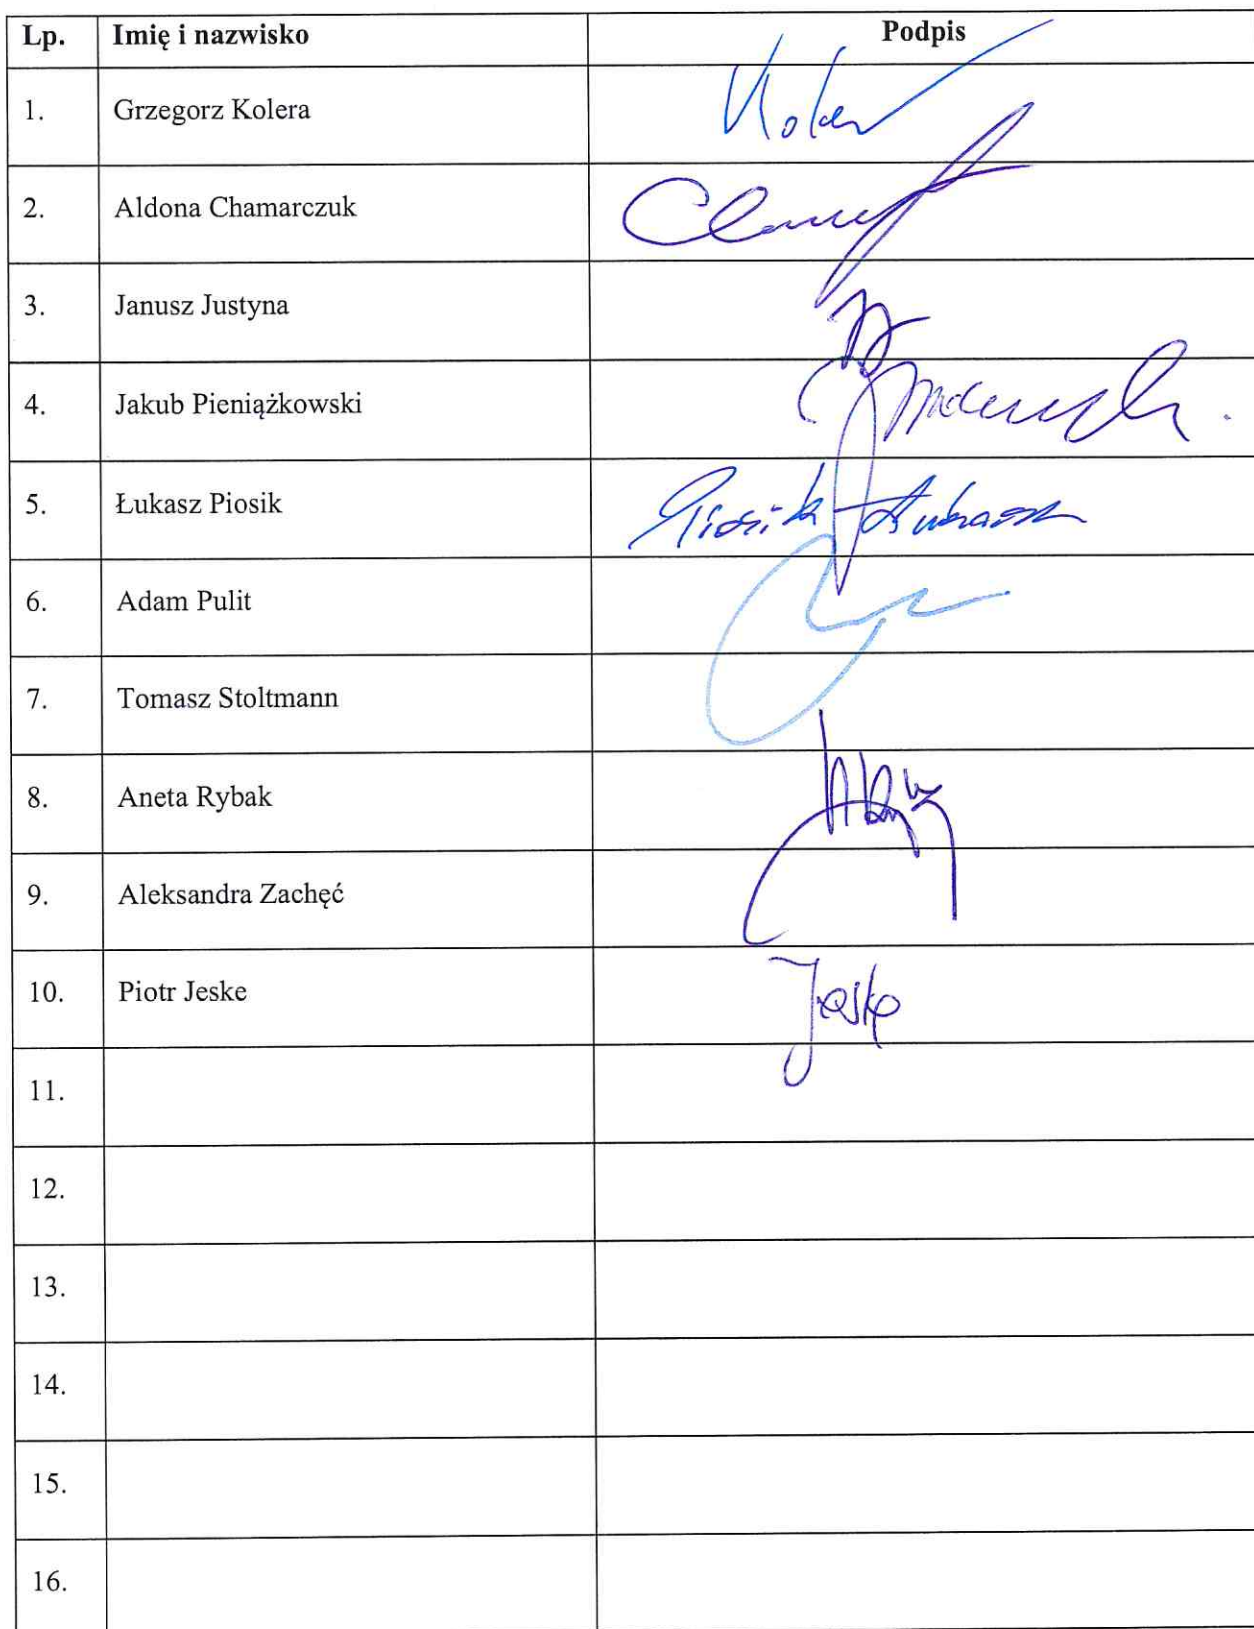 Lp. Imię i nazwisko Podpis
1. Grzegorz Kolera
2. Aldona Chamarczuk
3. Janusz Justyna
4. Jakub Pieniążkowski
5. Łukasz Piosik Piosik Łukasz
6. Adam Pulit
7. Tomasz Stoltmann
8. Aneta Rybak
9. Aleksandra Zachęć
10. Piotr Jeske Jeske
11.
12.
13.
14.
15.
16.